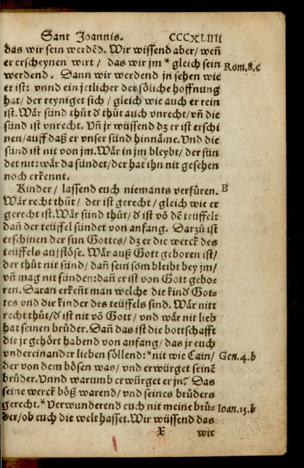 Sant Joannis. CCCXLIIII
das wir sein werdẽd. Wir wissend aber / weñ
er erscheynen wirt / das wir jm * gleich sein
Rom. 8. c
werdend. Dann wir werdend jn sehen wie
er ist: vnnd ein jetlicher der söliche hoffnung
hat / der reyniget sich / gleich wie auch er rein
ist. Wär sünd thůt d' thůt auch vnrecht / vñ die
sünd ist vnrecht. Vñ jr wüssend dz er ist erschi
nen / auff daß er vnser sünd hinnäme. Vnd die
sünd ist nit von jm. Wär in jm bleybt / der sün
det nit: wär da sündet / der hat ihn nit gesehen
noch erkennt.
Kinder / lassend euch niemants verfüren.
B
Wär recht thůt / der ist gerecht / gleich wie er
gerecht ist. Wär sünd thůt / d' ist võ dẽ teüffel:
dañ der teüffel sündet von anfang. Darzů ist
erschinen der sun Gottes / dz er die werck des
teüffels auflöse. Wär auß Gott geboren ist /
der thůt nit sünd / dañ sein som bleibt bey jm /
vñ mag nit sünden: dañ er ist von Gott gebo-
ren. Daran erkeñt man welche die kind Got-
tes vnd die kinder des teüffels sind. Wär nitt
recht thůt / d' ist nit võ Gott / vnd wär nit lieb
hat seinen brůder. Dañ das ist die bottschafft
die jr gehört habend von anfang / das jr euch
vndereinander lieben söllend: * nit wie Cain /
Gen. 4. b
der von dem bösen was / vnd erwürget seinẽ
brůder. Vnnd warumb erwürget er jn? Das
seine werck böß warend / vnd seines brůders
gerecht. * Verwunderend euch nit meine brů-
Ioan. 15. b
der / ob euch die welt hasset. Wir wüssend das
X wir